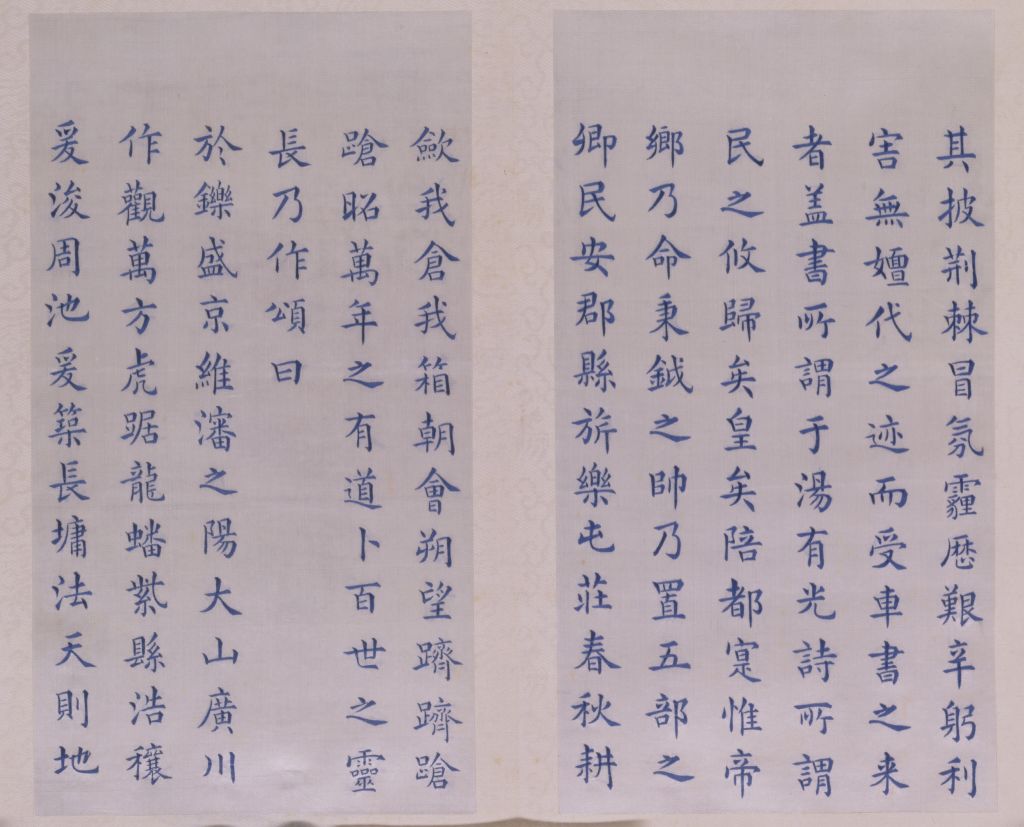 其披荆棘冒氛霾歷艱辛躬利
害無嬗代之迹而受車書之来
者盖書所謂于湯有光詩所謂
民之攸歸矣皇矣陪都寔惟帝
鄉乃命秉鉞之帥乃置五部之
卿民安郡縣旂樂屯莊春秋耕
歛我倉我箱朝會朔望蹡蹡蹌
蹌昭萬年之有道卜百世之靈
長乃作頌曰
於鑠盛京維瀋之陽大山廣川
作觀萬方虎踞龍蟠紫縣浩穰
爰浚周池爰築長墉法天則地